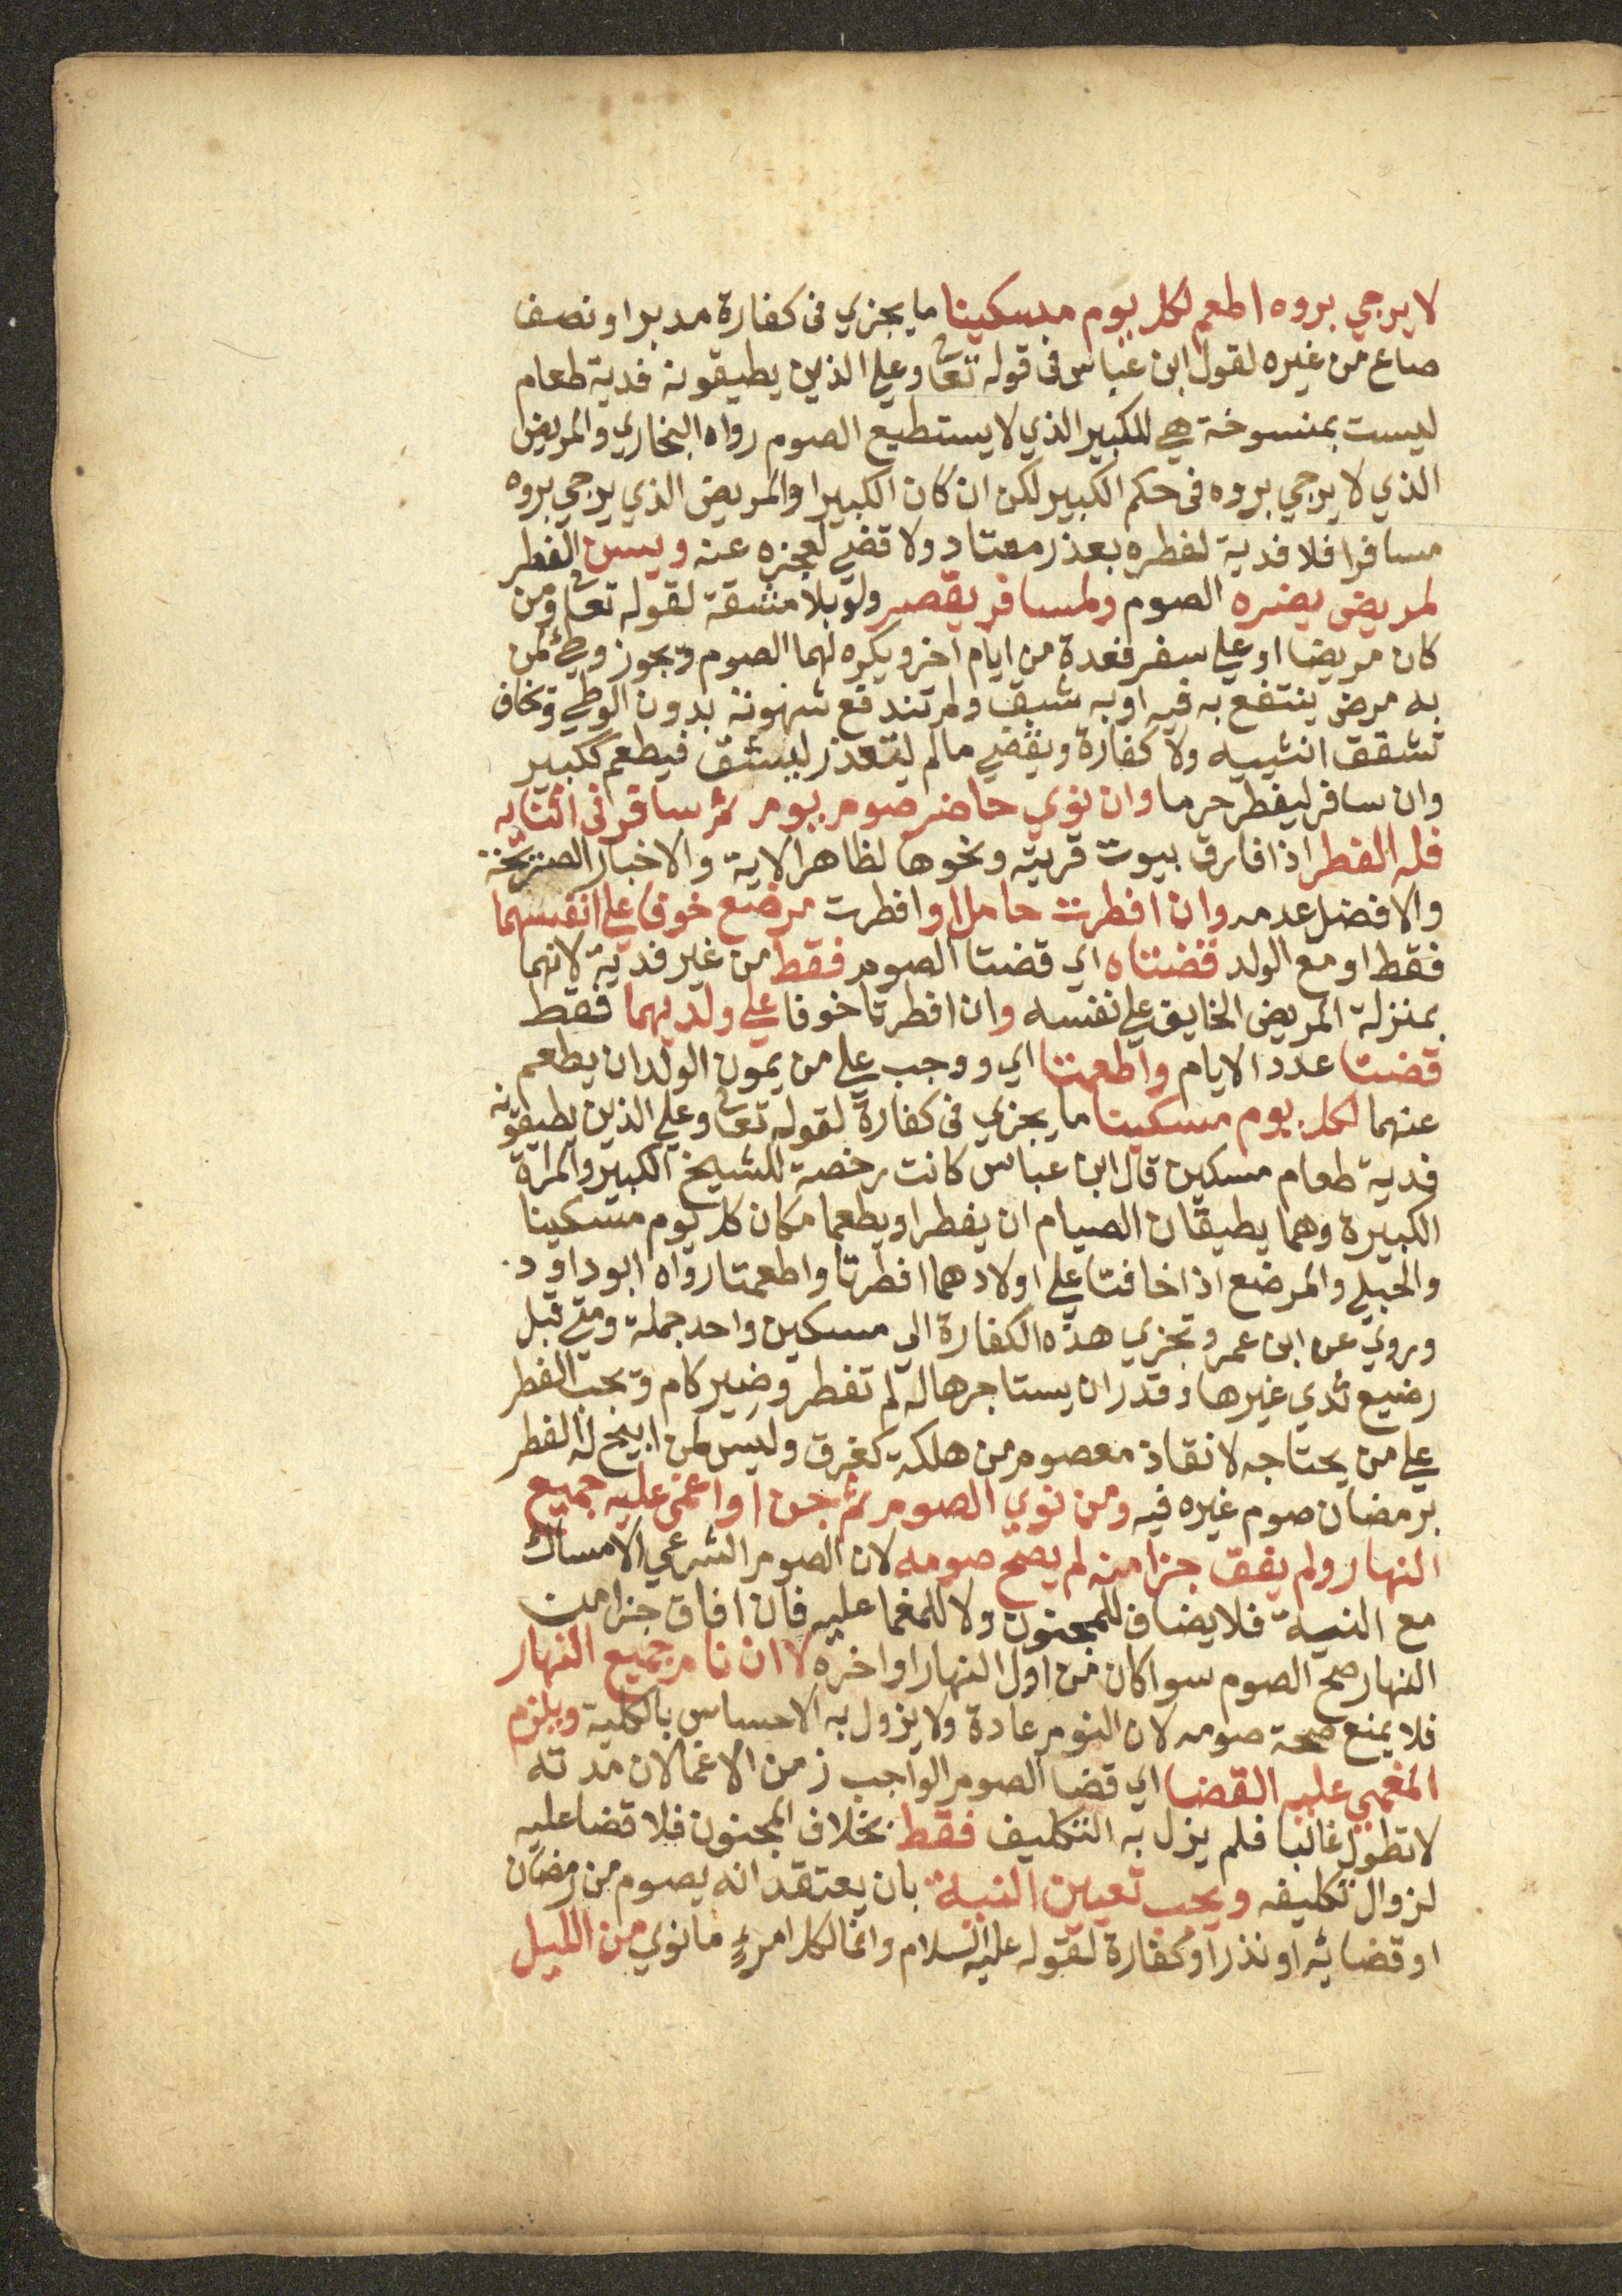 لا يرجي بروه اطعم لكل يوم مسكينا ما يجزي فى كفارة مد برا ونصف
صاع من غيره لقول ابن عباس فى قوله تعا وعلي الذين يطيقونه فدية طعام
ليست بمنسوخة هي للكبير الذي لا يستطيع الصوم رواه البخاري والمريض
الذي لا يرجي بروه فى حكم الكبير لكن ان كان الكبير او المريض الذي يرجي بروه
مسافرا فلا فدية لفطره بعذر معتاد ولا قضي لعجزه عنه ويسن الفطر
لمريض يضره الصوم ولمسافر يقصر ولو بلا مشقة لقوله تعا ومن
كان مريضا او علي سفر فعدة من ايام اخر ويكره لهما الصوم ويجوز وطئ لمن
به مرض ينتفع به فيه او به شبق ولم تندفع شهوته بدون الوطي ويخاف
تشقق انثييه ولا كفارة ويقضي مالم يتعذر لشبق فيطعم ككبير
وان سافر ليفطر حرما وان نوي حاضر صوم يوم ثم سافر فى اثنايه
فله الفطر اذا فارق بيوت قريته ونحوها لظاهر الاية والاخبار الصريحة
والافضل عدمه وان افطرت حامل او افطرت مرضع خوفا علي انفسهما
فقط او مع الولد قضتاه اي قضتا الصوم فقط من غير فدية لانهما
بمنزلة المريض الخايف علي نفسه وان افطرتا خوفا علي ولديهما فقط
قضتا عدد الايام واطعمتا اي ووجب علي من يمون الولد ان يطعم
عنهما لكل يوم مسكينا ما يجزي فى كفارة لقوله تعا وعلي الذين يطيقونه
فدية طعام مسكين قال ابن عباس كانت رخصة للشيخ الكبير والمراة
الكبيرة وهما يطيقان الصيام ان يفطرا ويطعما مكان كل يوم مسكينا
والحبلي والمرضع اذا خافتا علي اولادهما افطرتا واطعمتا رواه ابو داود
وروي عن ابن عمر وتجزي هذه الكفارة الي مسكين واحد جملة ومتي قبل
رضيع ثدي غيرها وقدر ان يستاجر هاله لم تفطر وضير كام ويجب الفطر
علي من يحتاجه لانقاذ معصوم من هلكة كغرق وليس لمن ابيح له الفطر
برمضان صوم غيره فيه ومن نوي الصوم ثم جن او اغمي عليه جميع
النهار ولم يفق جزا منه لم يصح صومه لان الصوم الشرعي الامساك
مع النية فلا يضاف للمجنون ولا للمغما عليه فان افاق جزا من
النهار صح الصوم سوا كان من اول النهار او اخره لا ان نام جميع النهار
فلا يمنع صحة صومه لان النوم عادة ولا يزول به الاحساس بالكلية ويلزم
المغمي عليه القضا اي قضا الصوم الواجب زمن الاغما لان مدته
لا تطول غالبا فلم يزل به التكليف فقط بخلاف المجنون فلا قضا عليه
لزوال تكليفه ويجب تعيين النية بان يعتقد انه يصوم من رمضان
او قضايه او نذر او كفارة لقوله عليه السلام وانما لكل امرئ ما نوي من الليل